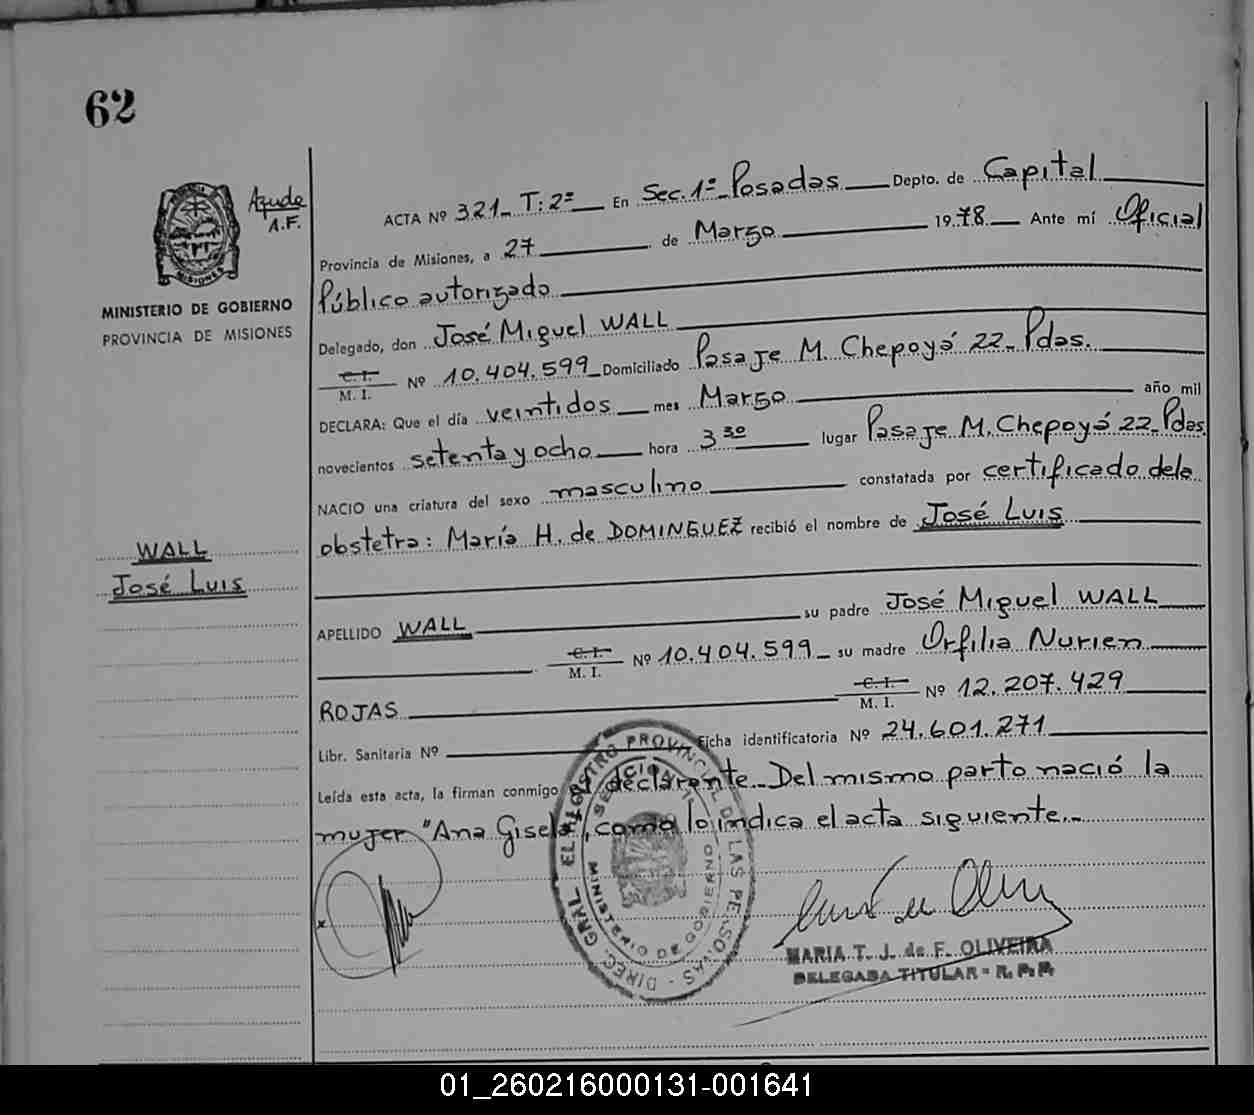 62
Ayude
A.F.
MISIONES
MINISTERIO DE GOBIERNO
PROVINCIA DE MISIONES
ACTA Nº 321_ T: 2º En Sec. 1º_ Posadas Depto. de Capital
Provincia de Misiones, a 27 de Marzo 1978 Ante mí Oficial
Público autorizado
Delegado, don José Miguel WALL
C. I.
M. I. Nº 10.404.599_ Domiciliado Pasaje M. Chepoyá 22_ Pdas.
DECLARA: Que el día veintidos mes Marzo año mil
novecientos setenta y ocho hora 3 30 lugar Pasaje M. Chepoyá 22_ Pdas.
NACIO una criatura del sexo masculino constatada por certificado dela
obstetra: María H. de DOMINGUEZ recibió el nombre de José Luis
WALL
José Luis
APELLIDO WALL su padre José Miguel WALL
C. I.
M. I. Nº 10.404.599_ su madre Orfilia Nurien
ROJAS C. I.
M. I. Nº 12.207.429
Libr. Sanitaria Nº Ficha identificatoria Nº 24.601.271
Leída esta acta, la firman conmigo el declarante_ Del mismo parto nació la
mujer "Ana Gisela", como lo indica el acta siguiente._
DIREC. GRAL. EL REGISTRO PROVINCIAL DE LAS PERSONAS
SECCION 1ª
MINISTERIO DE GOBIERNO
MARIA T. J. de F. OLIVEIRA
DELEGADA TITULAR - R. P. P.
01_260216000131-001641